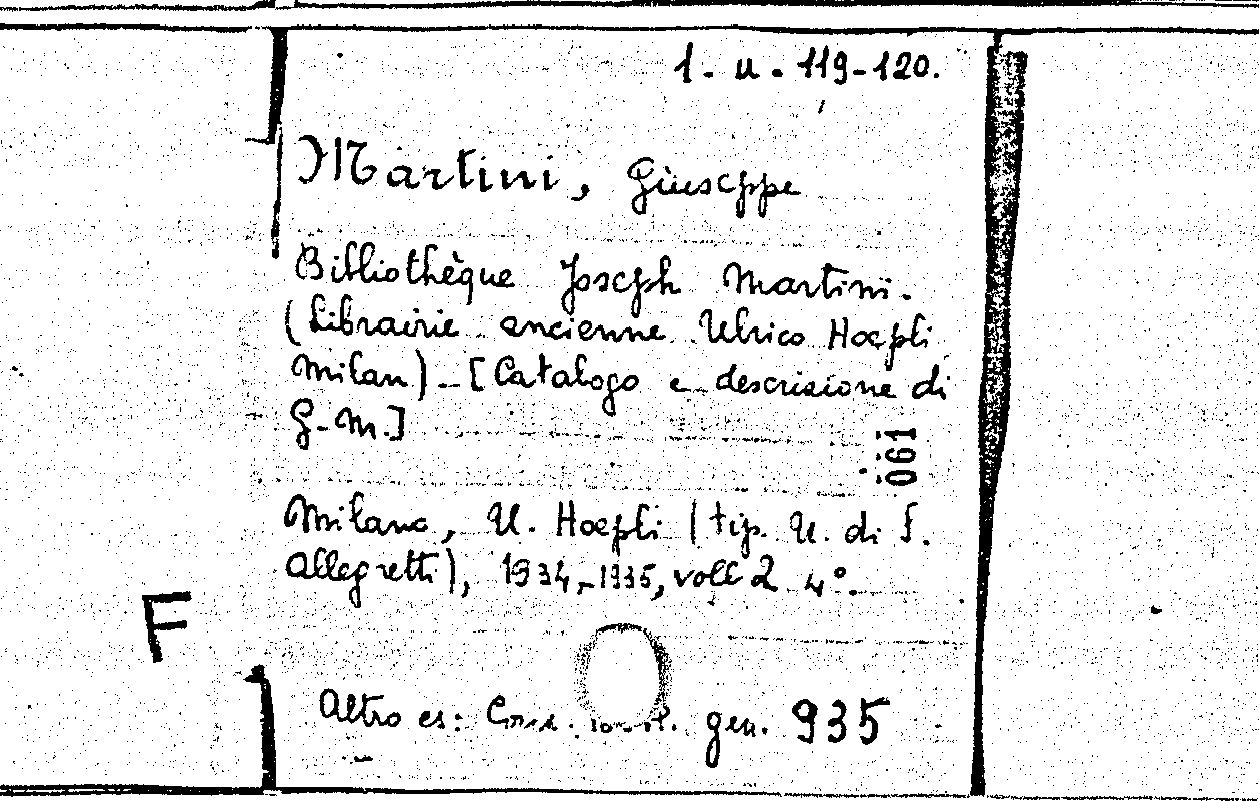 1. u. 119-120.
Martini, Giuseppe
Bibliothèque Joseph Martini.
(Librairie ancienne Ulrico Hoepli
Milan) - [Catalogo e descrizione di
G. M.]
061
Milano, U. Hoepli (tip. U. di S.
Allegretti), 1934-1935, voll 2 4°.
F
Altro es: gen. 935